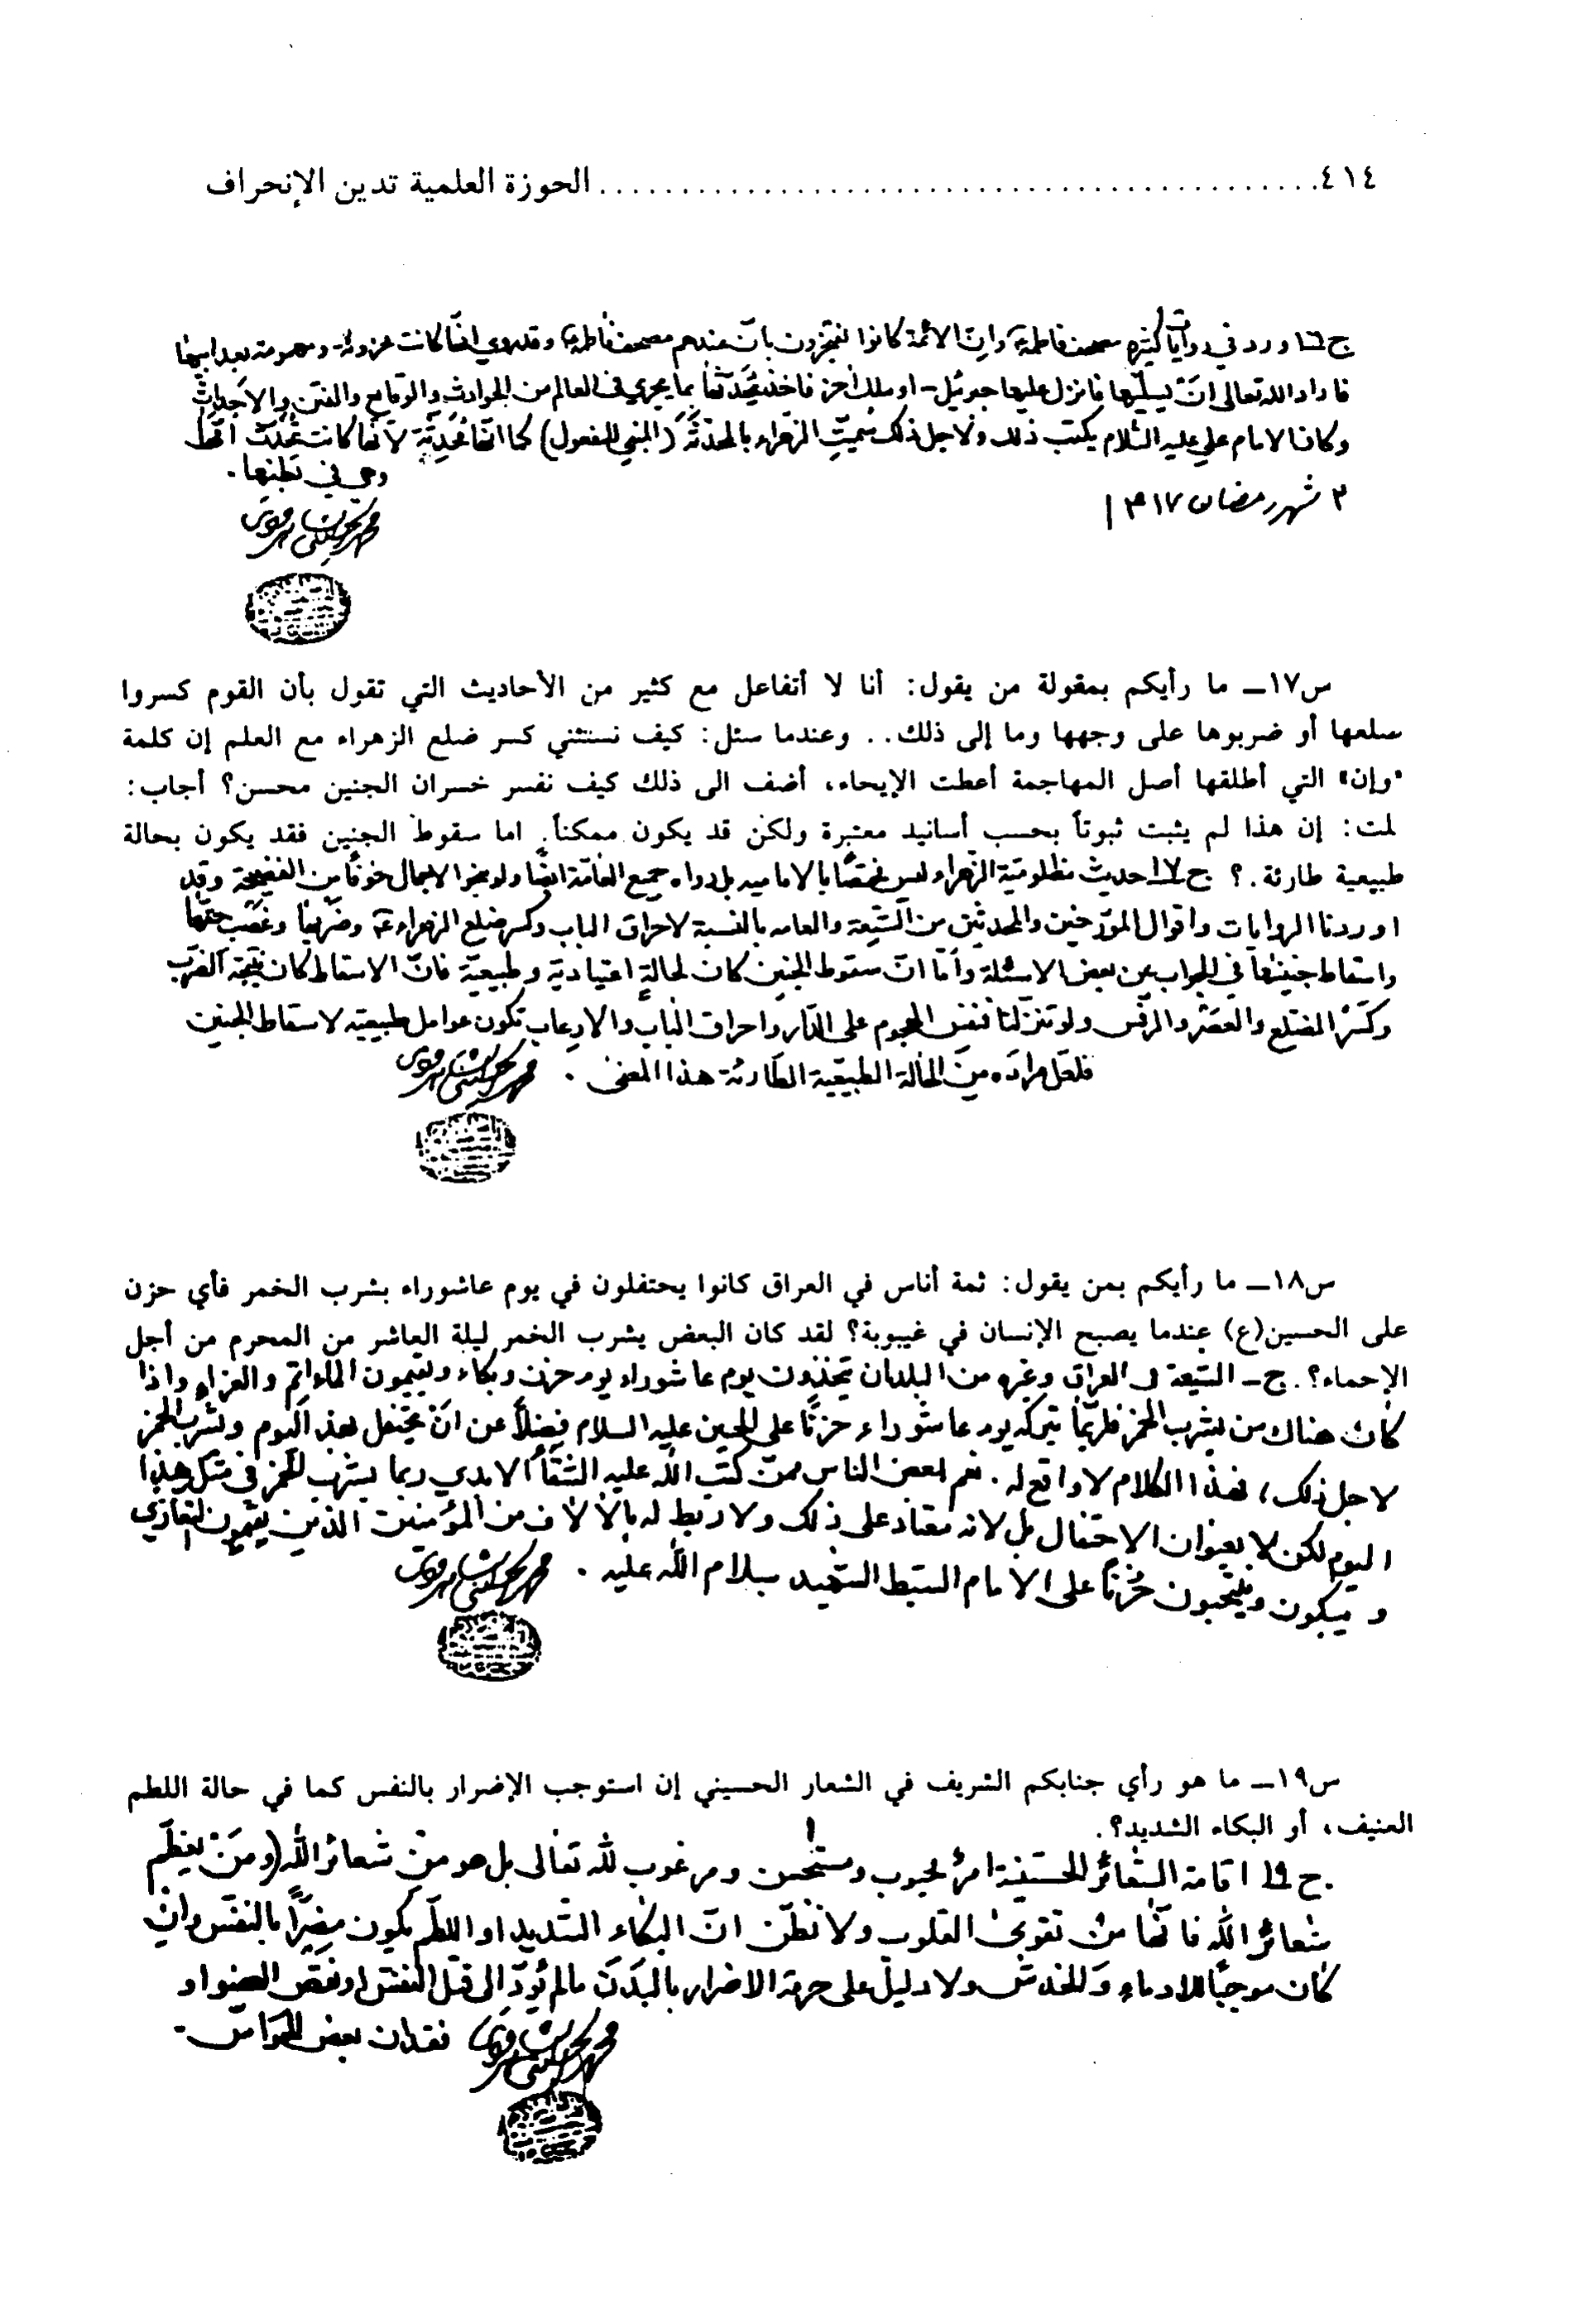 ٤١٤ ........................................ الحوزة العلمية تدين الإنحراف
ج١٦ ورد في روايات كثيرة مصحف فاطمة وان الائمة كانوا يفتخرون بان عندهم مصحف فاطمة وقد روي انها كانت محزونة ومهمومة بعد ابيها
فاراد الله تعالى ان يسليها فانزل عليها جبرئيل - او ملك آخر فاخذ يحدثها بما يجري في العالم من الحوادث والوقايع والفتن والاحداث
وكان الامام علي عليه السلام يكتب ذلك ولاجل ذلك سميت الزهراء بالمحدثة (المبني للمفعول) كما انها محدثة لانها كانت تحدث امها
وهي في بطنها.
٢ شهر رمضان ١٤١٧
س١٧ـ ما رأيكم بمقولة من يقول: أنا لا أتفاعل مع كثير من الأحاديث التي تقول بأن القوم كسروا
ضلعها أو ضربوها على وجهها وما إلى ذلك.. وعندما سئل: كيف نستثني كسر ضلع الزهراء مع العلم إن كلمة
«وإن» التي أطلقها أصل المهاجمة أعطت الإيحاء، أضف الى ذلك كيف نفسر خسران الجنين محسن؟ أجاب:
لمت: إن هذا لم يثبت ثبوتاً بحسب أسانيد معتبرة ولكن قد يكون ممكناً. اما سقوط الجنين فقد يكون بحالة
طبيعية طارئة.؟ ج١٧ حديث مظلومية الزهراء ليس مختصا بالامامية بل رواه جميع العامة ايضا ولو بنحو الاجمال خوفا من الفضيحة وقد
اوردنا الروايات واقوال المؤرخين والمحدثين من الشيعة والعامه بالنسبة لاحراق الباب وكسر ضلع الزهراء ع وضربها وغصب حقها
واسقاط جنينها في الجواب عن بعض الاسئلة وأما ان سقوط الجنين كان لحالة اعتيادية وطبيعية فان الاسقاط كان نتيجة الضرب
وكسر الضلع والعصر والرفس ولو تنزلنا فنفس الهجوم على الدار واحراق الباب والارعاب تكون عوامل طبيعية لاسقاط الجنين
فلعل مراده من الحالة الطبيعية الطارئة هذا المعنى.
س١٨ـ ما رأيكم بمن يقول: ثمة أناس في العراق كانوا يحتفلون في يوم عاشوراء بشرب الخمر فأي حزن
على الحسين(ع) عندما يصبح الإنسان في غيبوبة؟ لقد كان البعض يشرب الخمر ليلة العاشر من المحرم من أجل
الإحماء؟. ج- الشيعة في العراق وغيره من البلدان يتخذون يوم عاشوراء يوم حزن وبكاء ويقيمون المآتم والعزاء واذا
كان هناك من يشرب الخمر فلربما يتركه يوم عاشوراء حزنا على الحسين عليه السلام فضلا عن ان يحتفل بهذ اليوم ويشرب الخمر
لاجل ذلك، فهذا الكلام لا واقع له. نعم بعض الناس ممن كتب الله عليه الشقاء الابدي ربما يشرب الخمر في مثل هذا
اليوم لكن لا بعنوان الاحتفال بل لانه معتاد على ذلك ولا ربط له بالآلاف من المؤمنين الذين يقيمون التعازي
و يبكون وينتحبون حزنا على الامام السبط الشهيد سلام الله عليه.
س١٩ـ ما هو رأي جنابكم الشريف في الشعار الحسيني إن استوجب الإضرار بالنفس كما في حالة اللطم
العنيف، أو البكاء الشديد؟.
ج١٩ اقامة الشعائر الحسينية امر محبوب ومستحسن ومرغوب لله تعالى بل هو من شعائر الله (ومن يعظم
شعائر الله فانها من تقوى القلوب ولا نظن ان البكاء الشديد او اللطم يكون مضرا بالنفس وان
كان موجبا للادماء والخدش ولا دليل على حرمة الاضرار بالبدن مالم يؤد الى قتل النفس او نقص العضو او
فقدان بعض الحواس-